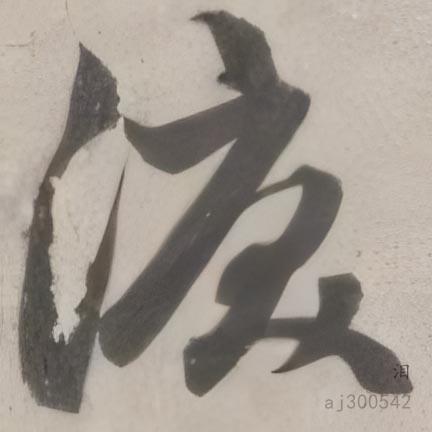 淚
泪
aj300542